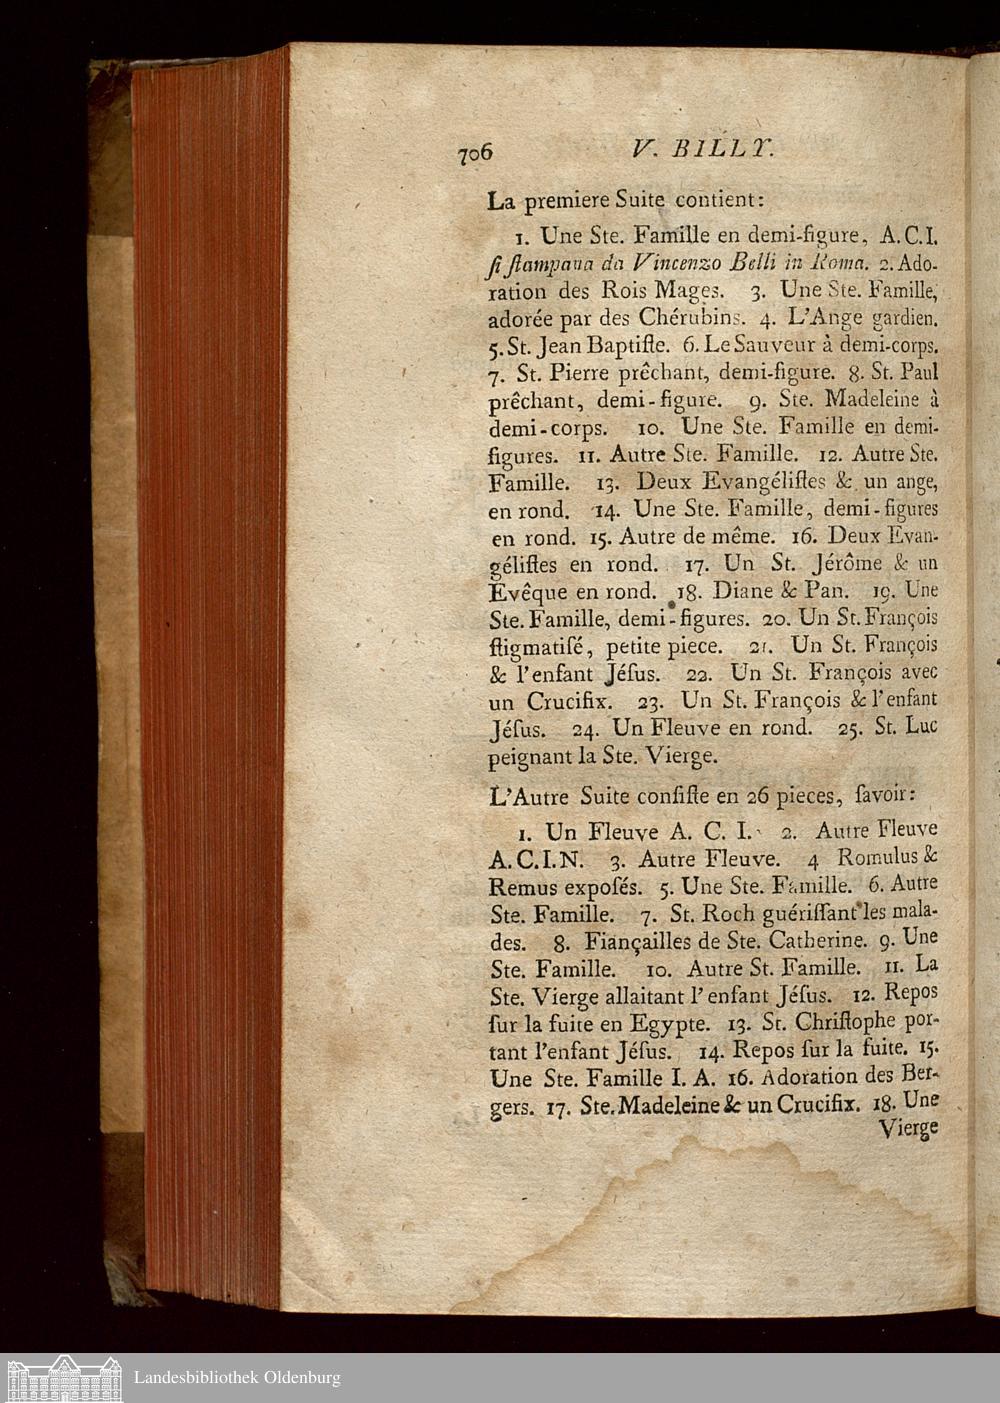 706 V. BILLY.
La premiere Suite contient:
1. Une Ste. Famille en demi-figure, A.C.I.
ſi ſtampaua da Vincenzo Belli in Roma. 2. Ado-
ration des Rois Mages. 3. Une Ste. Famille,
adorée par des Chérubins. 4. L'Ange gardien.
5. St. Jean Baptiſte. 6. Le Sauveur à demi-corps.
7. St. Pierre prêchant, demi-figure. 8. St. Paul
prêchant, demi-figure. 9. Ste. Madeleine à
demi-corps. 10. Une Ste. Famille en demi-
figures. 11. Autre Ste. Famille. 12. Autre Ste.
Famille. 13. Deux Evangéliſtes & un ange,
en rond. 14. Une Ste. Famille, demi-figures
en rond. 15. Autre de même. 16. Deux Evan-
géliſtes en rond. 17. Un St. Jérôme & un
Evêque en rond. 18. Diane & Pan. 19. Une
Ste. Famille, demi-figures. 20. Un St. François
ſtigmatiſé, petite piece. 21. Un St. François
& l'enfant Jéſus. 22. Un St. François avec
un Crucifix. 23. Un St. François & l'enfant
Jéſus. 24. Un Fleuve en rond. 25. St. Luc
peignant la Ste. Vierge.
L'Autre Suite conſiſte en 26 pieces, ſavoir:
1. Un Fleuve A. C. I. 2. Autre Fleuve
A.C.I.N. 3. Autre Fleuve. 4 Romulus &
Remus expoſés. 5. Une Ste. Famille. 6. Autre
Ste. Famille. 7. St. Roch guériſſant les mala-
des. 8. Fiançailles de Ste. Catherine. 9. Une
Ste. Famille. 10. Autre St. Famille. 11. La
Ste. Vierge allaitant l'enfant Jéſus. 12. Repos
ſur la fuite en Egypte. 13. St. Chriſtophe por-
tant l'enfant Jéſus. 14. Repos ſur la fuite. 15.
Une Ste. Famille I. A. 16. Adoration des Ber-
gers. 17. Ste. Madeleine & un Crucifix. 18. Une
Vierge
Landesbibliothek Oldenburg